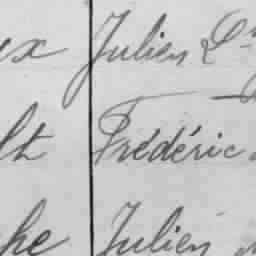 ux Julien
lt Frédéric
he Julien